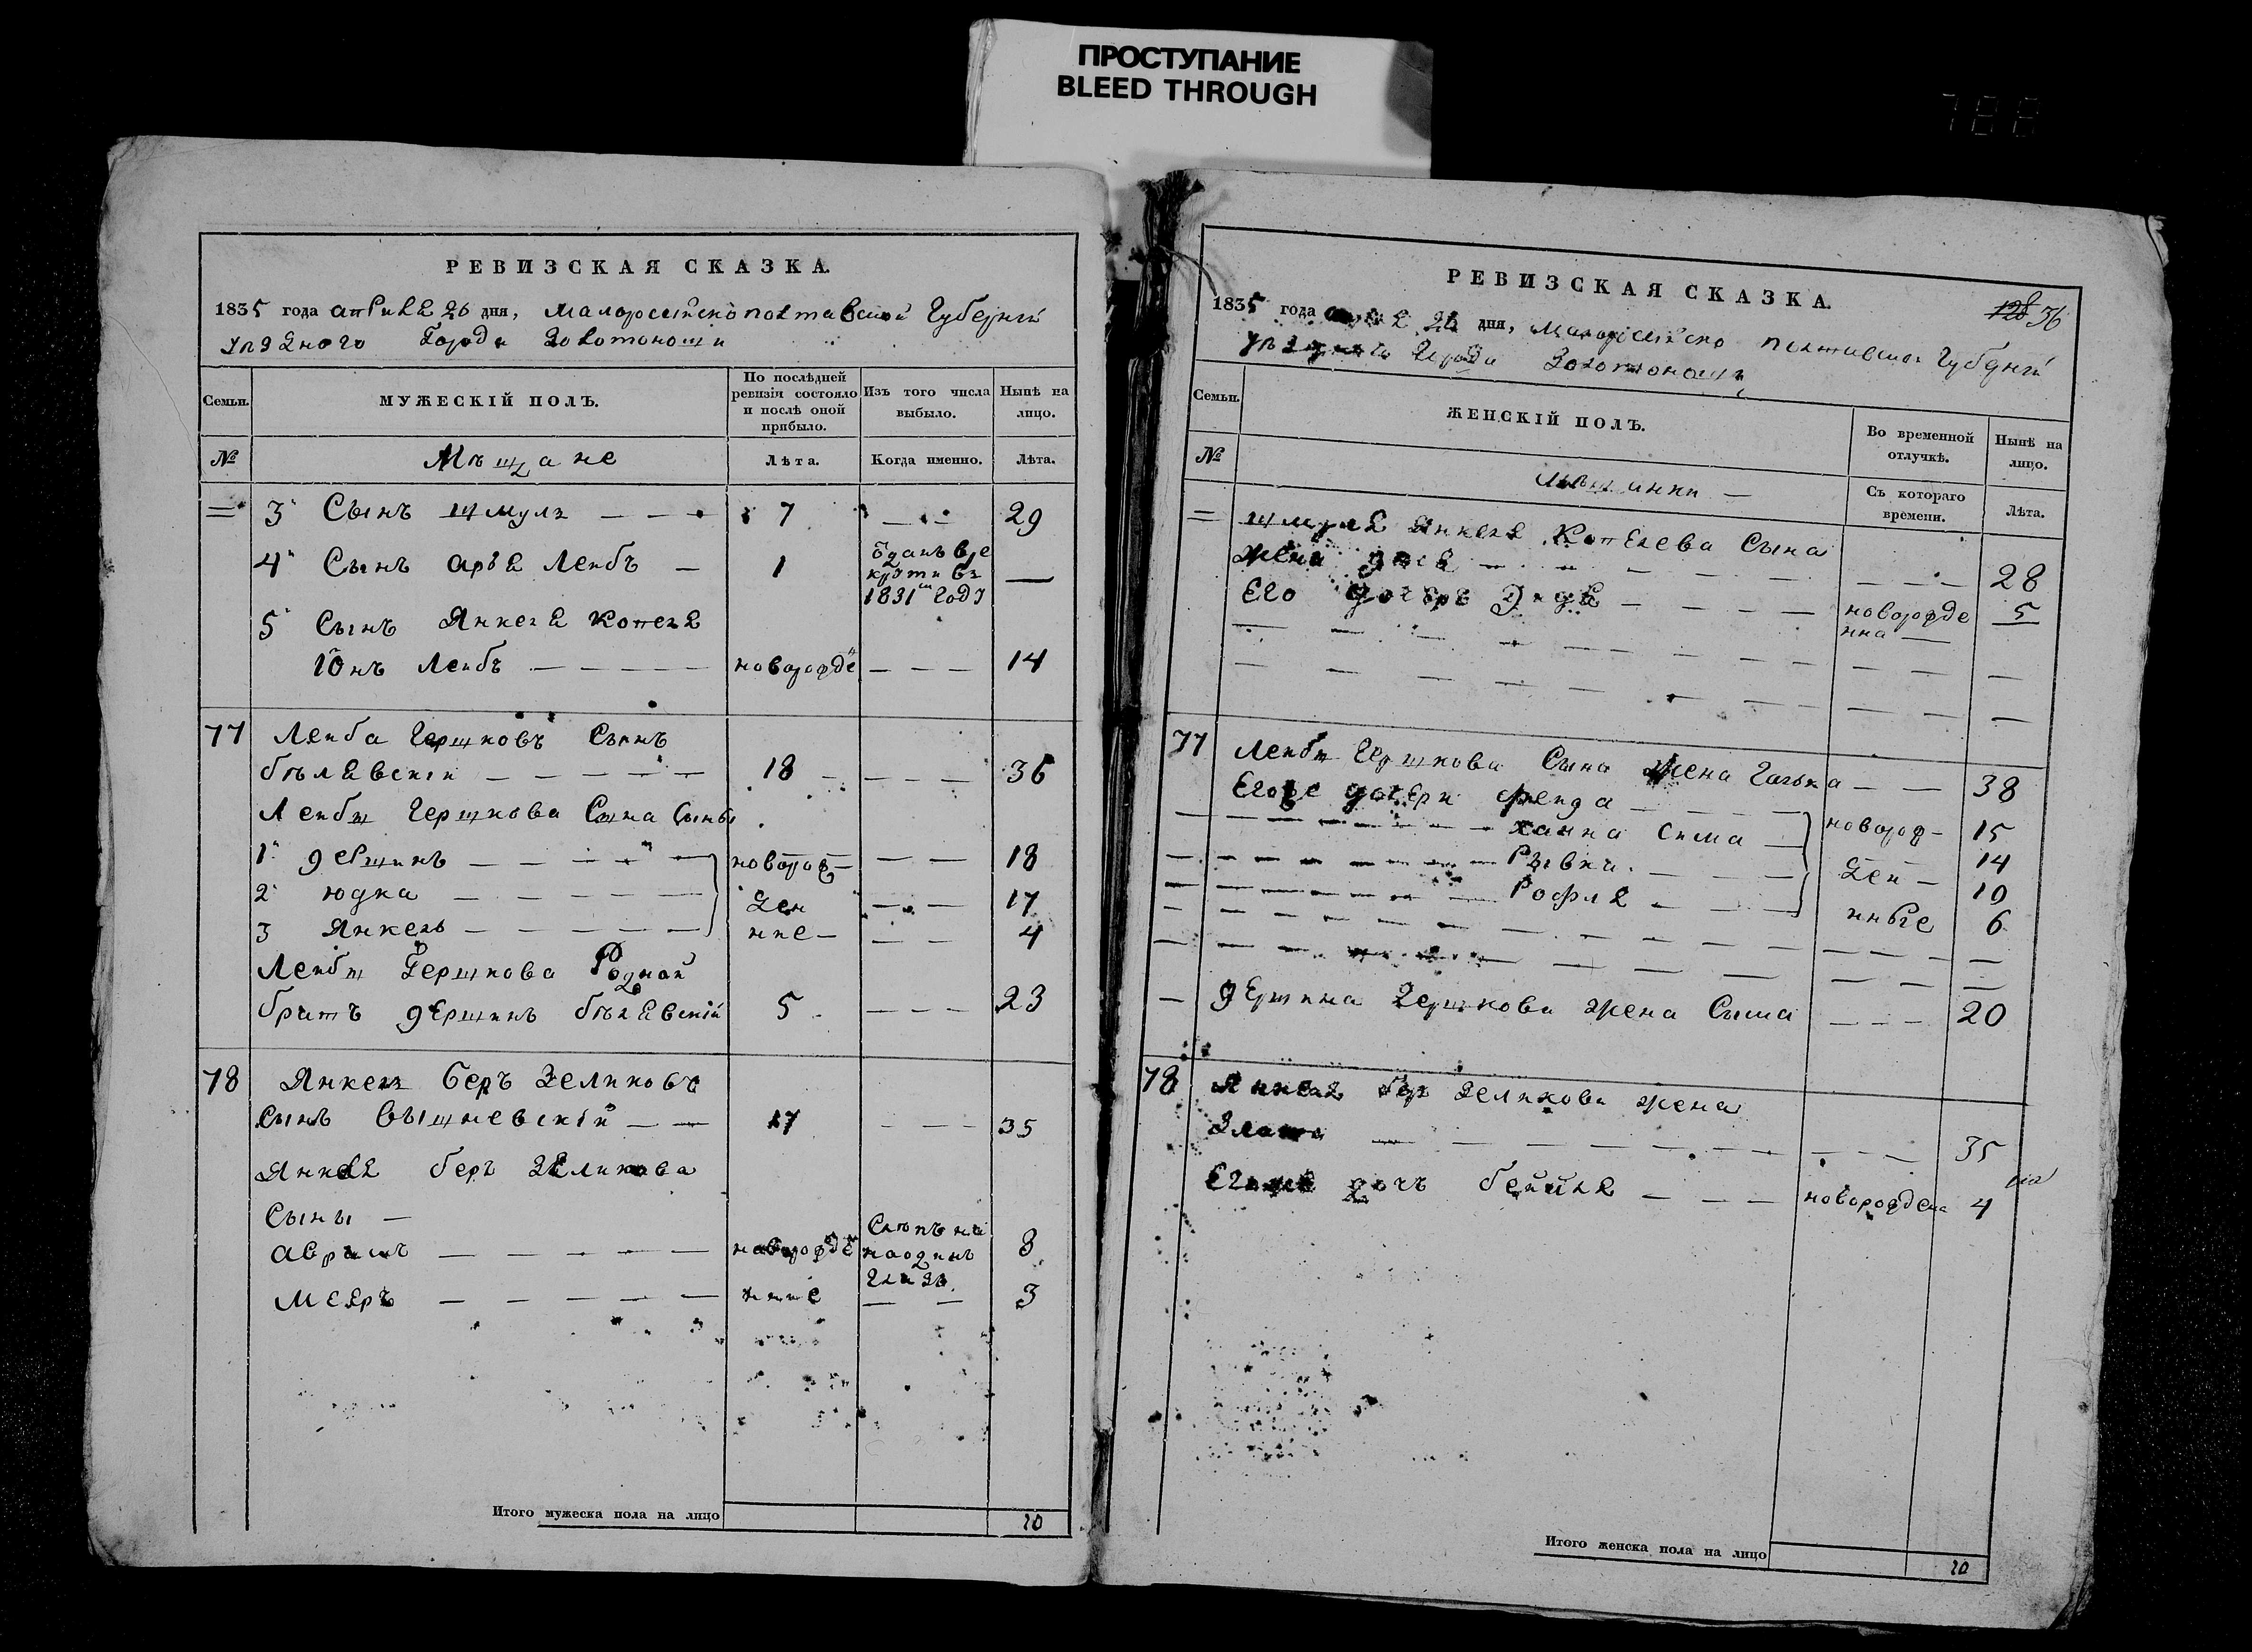 ПРОСТУПАНИЕ
BLEED THROUGH
788
РЕВИЗСКАЯ СКАЗКА.
1835 года априля 26 дня, Малоросійско полтавской Губерніи
уѣздного Города Золотоноши
Семьи.
МУЖЕСКІЙ ПОЛЪ.
По послѣдней ревизіи состояло и послѣ оной прибыло.
Изъ того числа выбыло.
Нынѣ на лицо.
№
Мѣщане
Лѣта.
Когда именно.
Лѣта.
= 3 Сынъ Шмуль — — — 7 — — 29
4 Сынъ Арья Лейбъ — 1 —
Отданъ в ре
круты въ
1831 году
5 Сынъ Янкеля Копеля
Юнъ Лейбъ — — — — — новорожде — — — 14
77 Лейба Гершковъ Сынъ
бѣлявскій — — — — — 18 — — — 36
Лейбы Гершкова Сына Сыны
1 дершинъ — — — — — новорож— — — 18
2 юдка — — — — — ден — — 17
3 Янкель — — — — — нне — — — 4
Лейбы Гершкова Родной
братъ дершинъ бѣлявскій 5 — — — 23
78 Янкель беръ Зеликовъ
Сынъ Вышневскій — — 17 — — — 35
Янкеля беръ Зеликова
Сыны —
Аврамъ — — — — — новорожде 8
Слѣпъ на
на одинъ
глазъ
Мееръ — — — — — нные — — 3
Итого мужеска пола на лицо 10
РЕВИЗСКАЯ СКАЗКА.
128 36
1835 года априля 26 дня, Малоросійско полтавской Губерніи
уѣздного Города Золотоноши
Семьи.
ЖЕНСКІЙ ПОЛЪ.
Во временной отлучкѣ.
Нынѣ на лицо.
№
Мѣщанки —
Съ котораго времени.
Лѣта.
= Шмуля Янкеля Копелева Сына
жена — — — — — — — — 28
Его дочерь — — — — новорожде 5
нна —
77 Лейбы Гершкова Сына жена Галька — — 38
Егоже дочери фрейда — — — новорож— 15
ханна Сима — 14
Рывка — — — ден — 10
Рофля — — — нные 6
— дершина Гершкова жена Сыма — — — 20
78 Янкеля беръ Зеликова жена
Злата — — — — — — — — — 35
Егоже дочь бейля — — — новорожденна 4
Итого женска пола на лицо 10